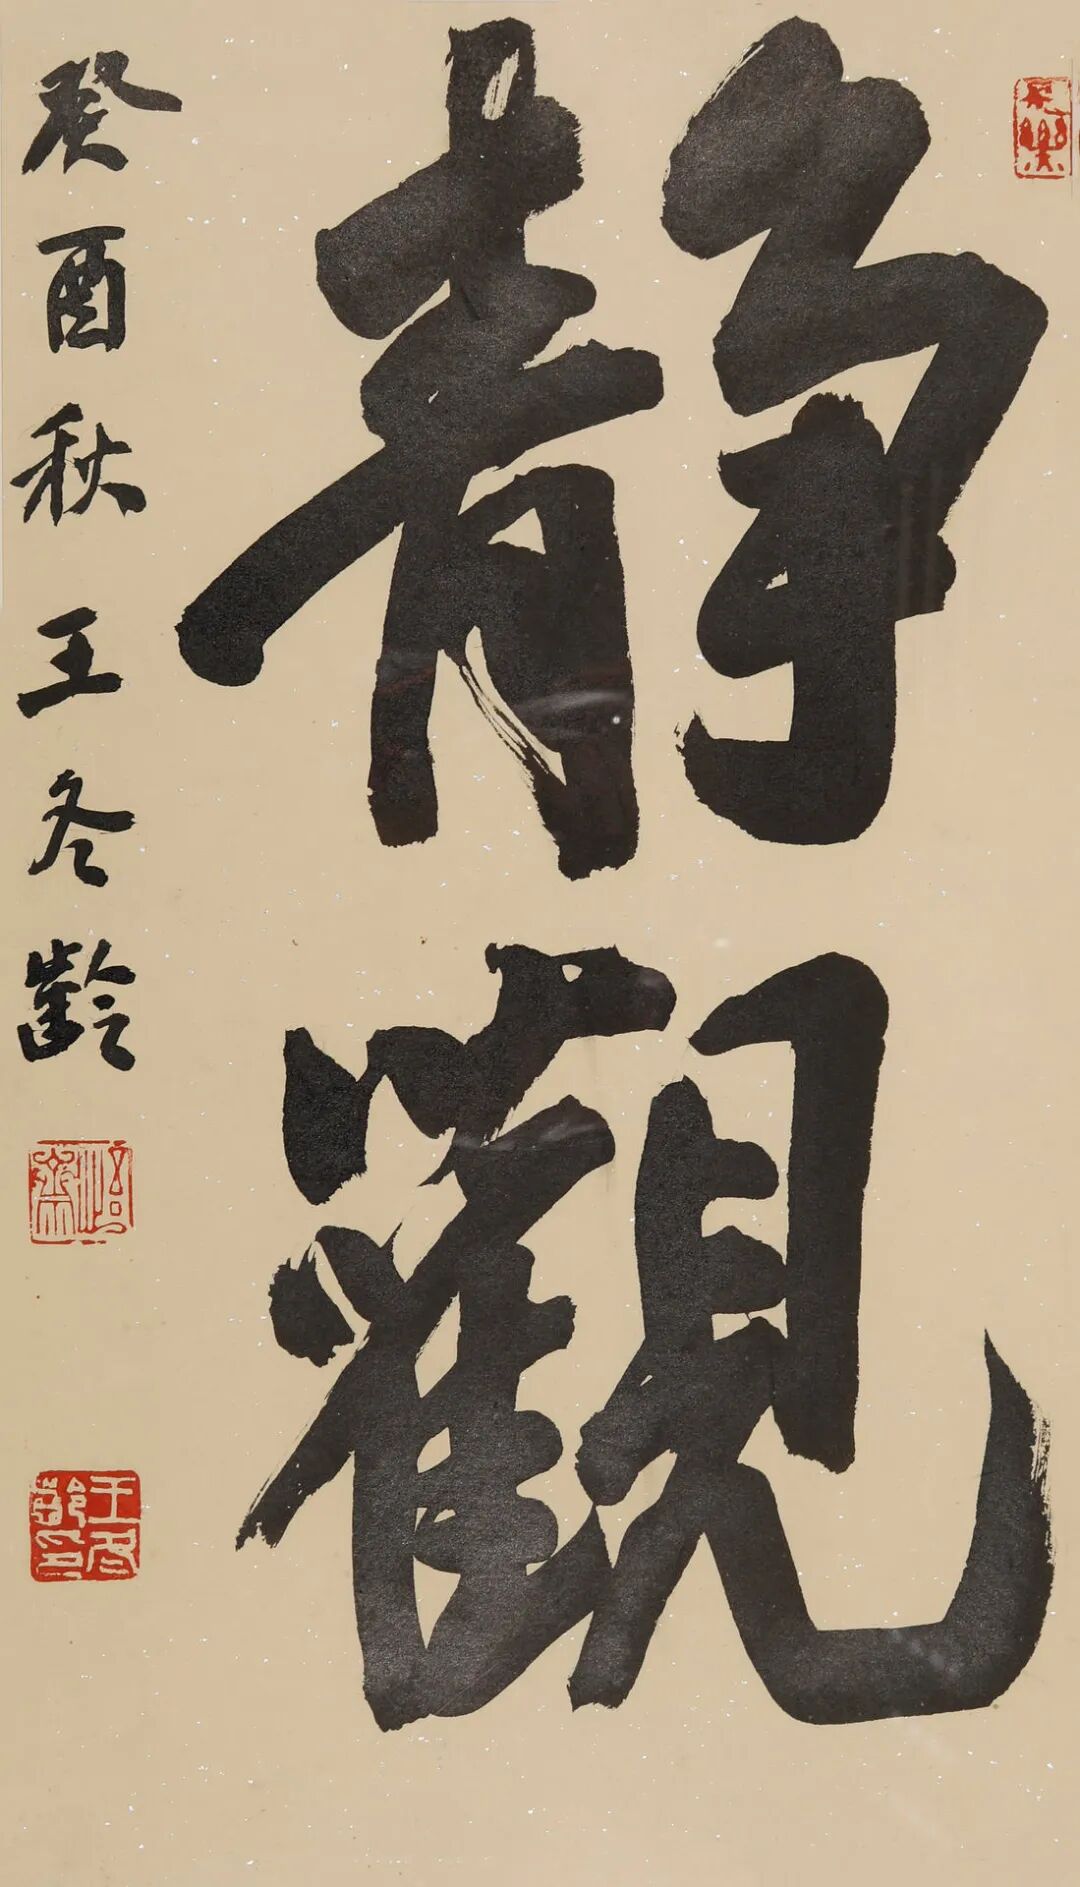 靜觀
癸酉秋王冬齡
王冬齡印